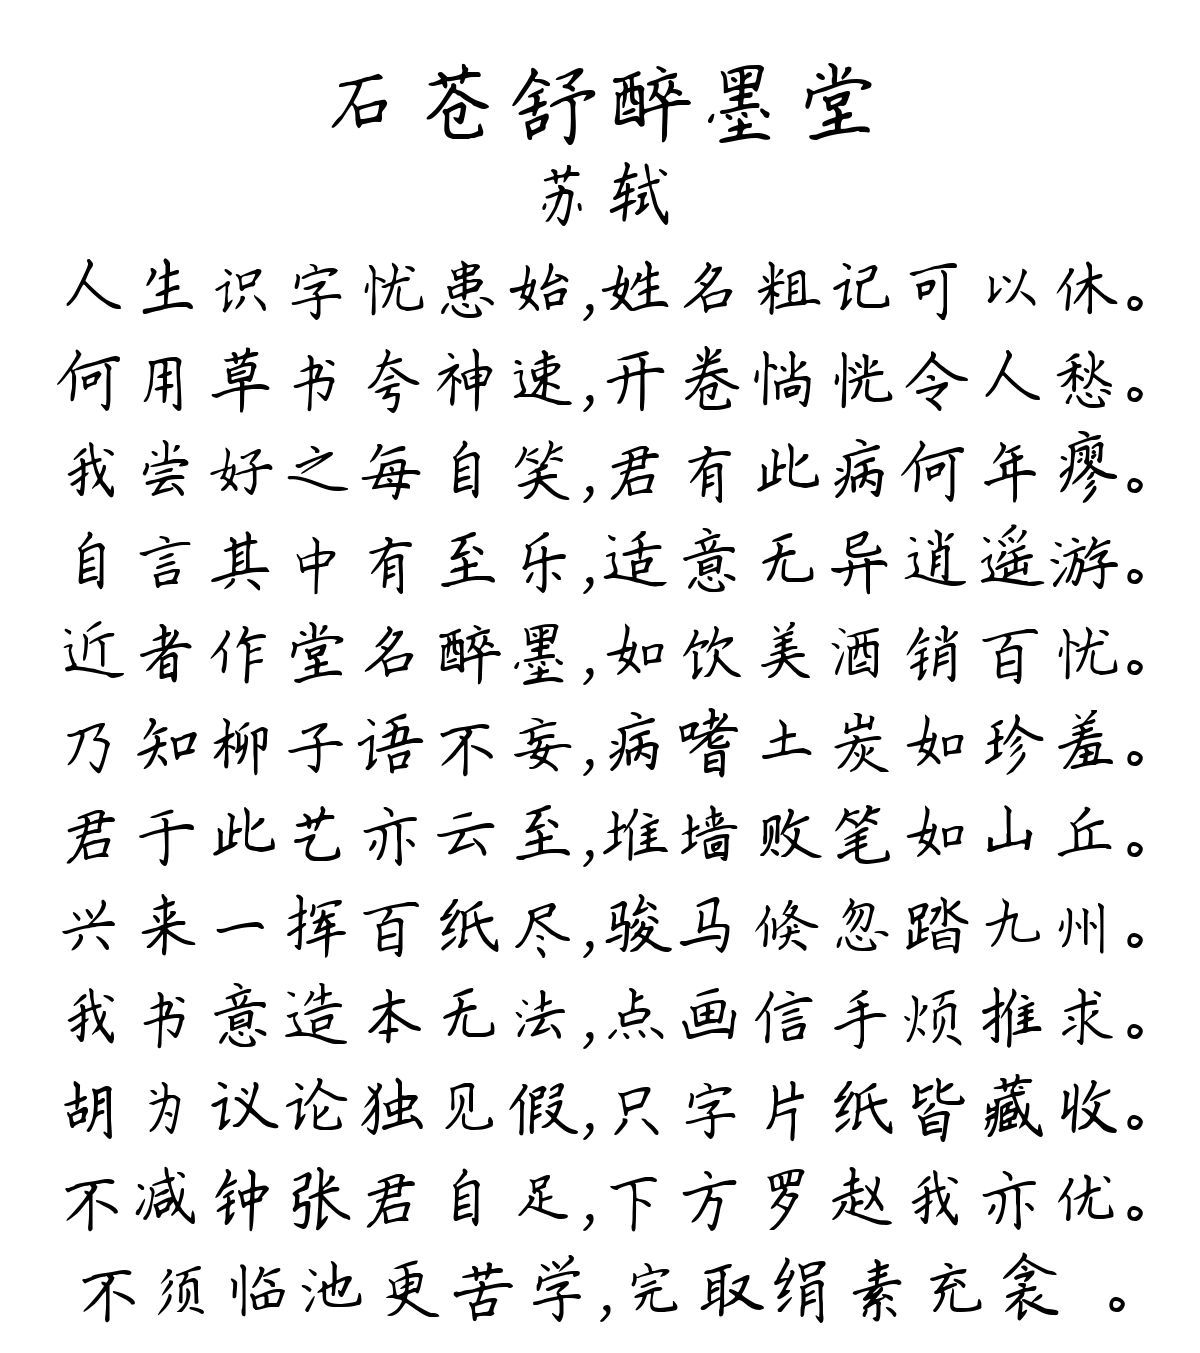 石苍舒醉墨堂
苏轼
人生识字忧患始,姓名粗记可以休。
何用草书夸神速,开卷惝恍令人愁。
我尝好之每自笑,君有此病何年瘳。
自言其中有至乐,适意无异逍遥游。
近者作堂名醉墨,如饮美酒销百忧。
乃知柳子语不妄,病嗜土炭如珍羞。
君于此艺亦云至,堆墙败笔如山丘。
兴来一挥百纸尽,骏马倏忽踏九州。
我书意造本无法,点画信手烦推求。
胡为议论独见假,只字片纸皆藏收。
不减钟张君自足,下方罗赵我亦优。
不须临池更苦学,完取绢素充衾。